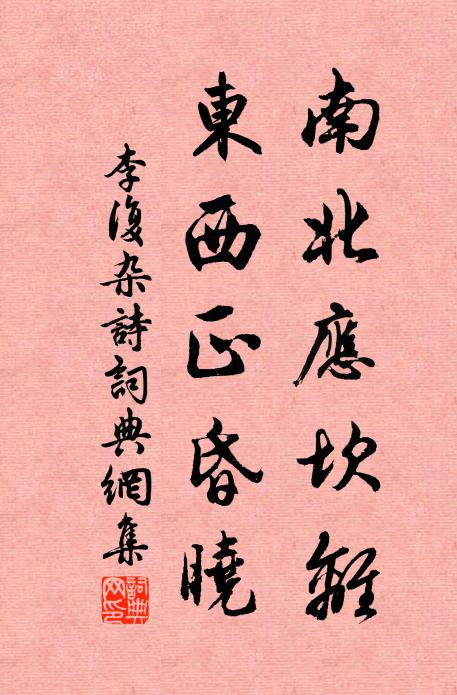 南北應坎離
東西正昏曉
李復杂詩詞典網集
詞典網印